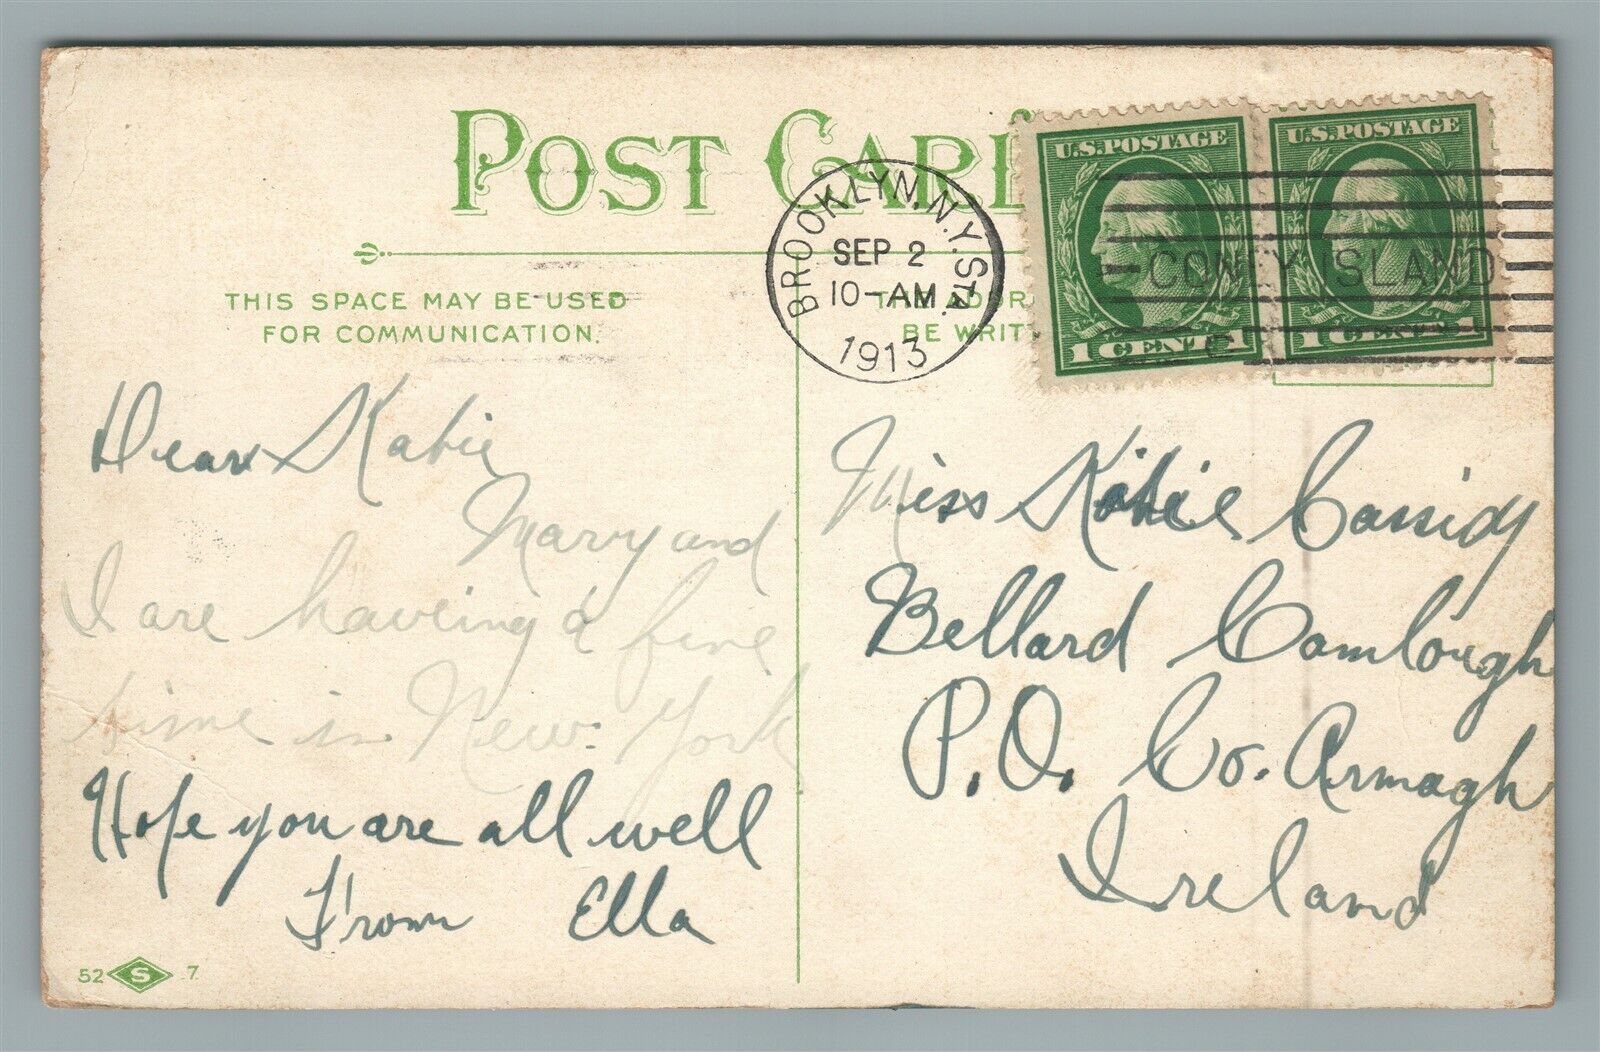 POST CARD
U.S. POSTAGE
U.S. POSTAGE
BROOKLYN, N.Y. STA.
SEP 2
10-AM
1913
CONEY ISLAND
1 CENT 1
1 CENT 1
THIS SPACE MAY BE USED
FOR COMMUNICATION.
THE ADDR
BE WRIT
Dear Katie
Mary and
I are haveing a fine
time in New York
Hope you are all well
From Ella
Miss Katie Cassidy
Bellard Camlough
P.O. Co. Armagh
Ireland
52 S 7